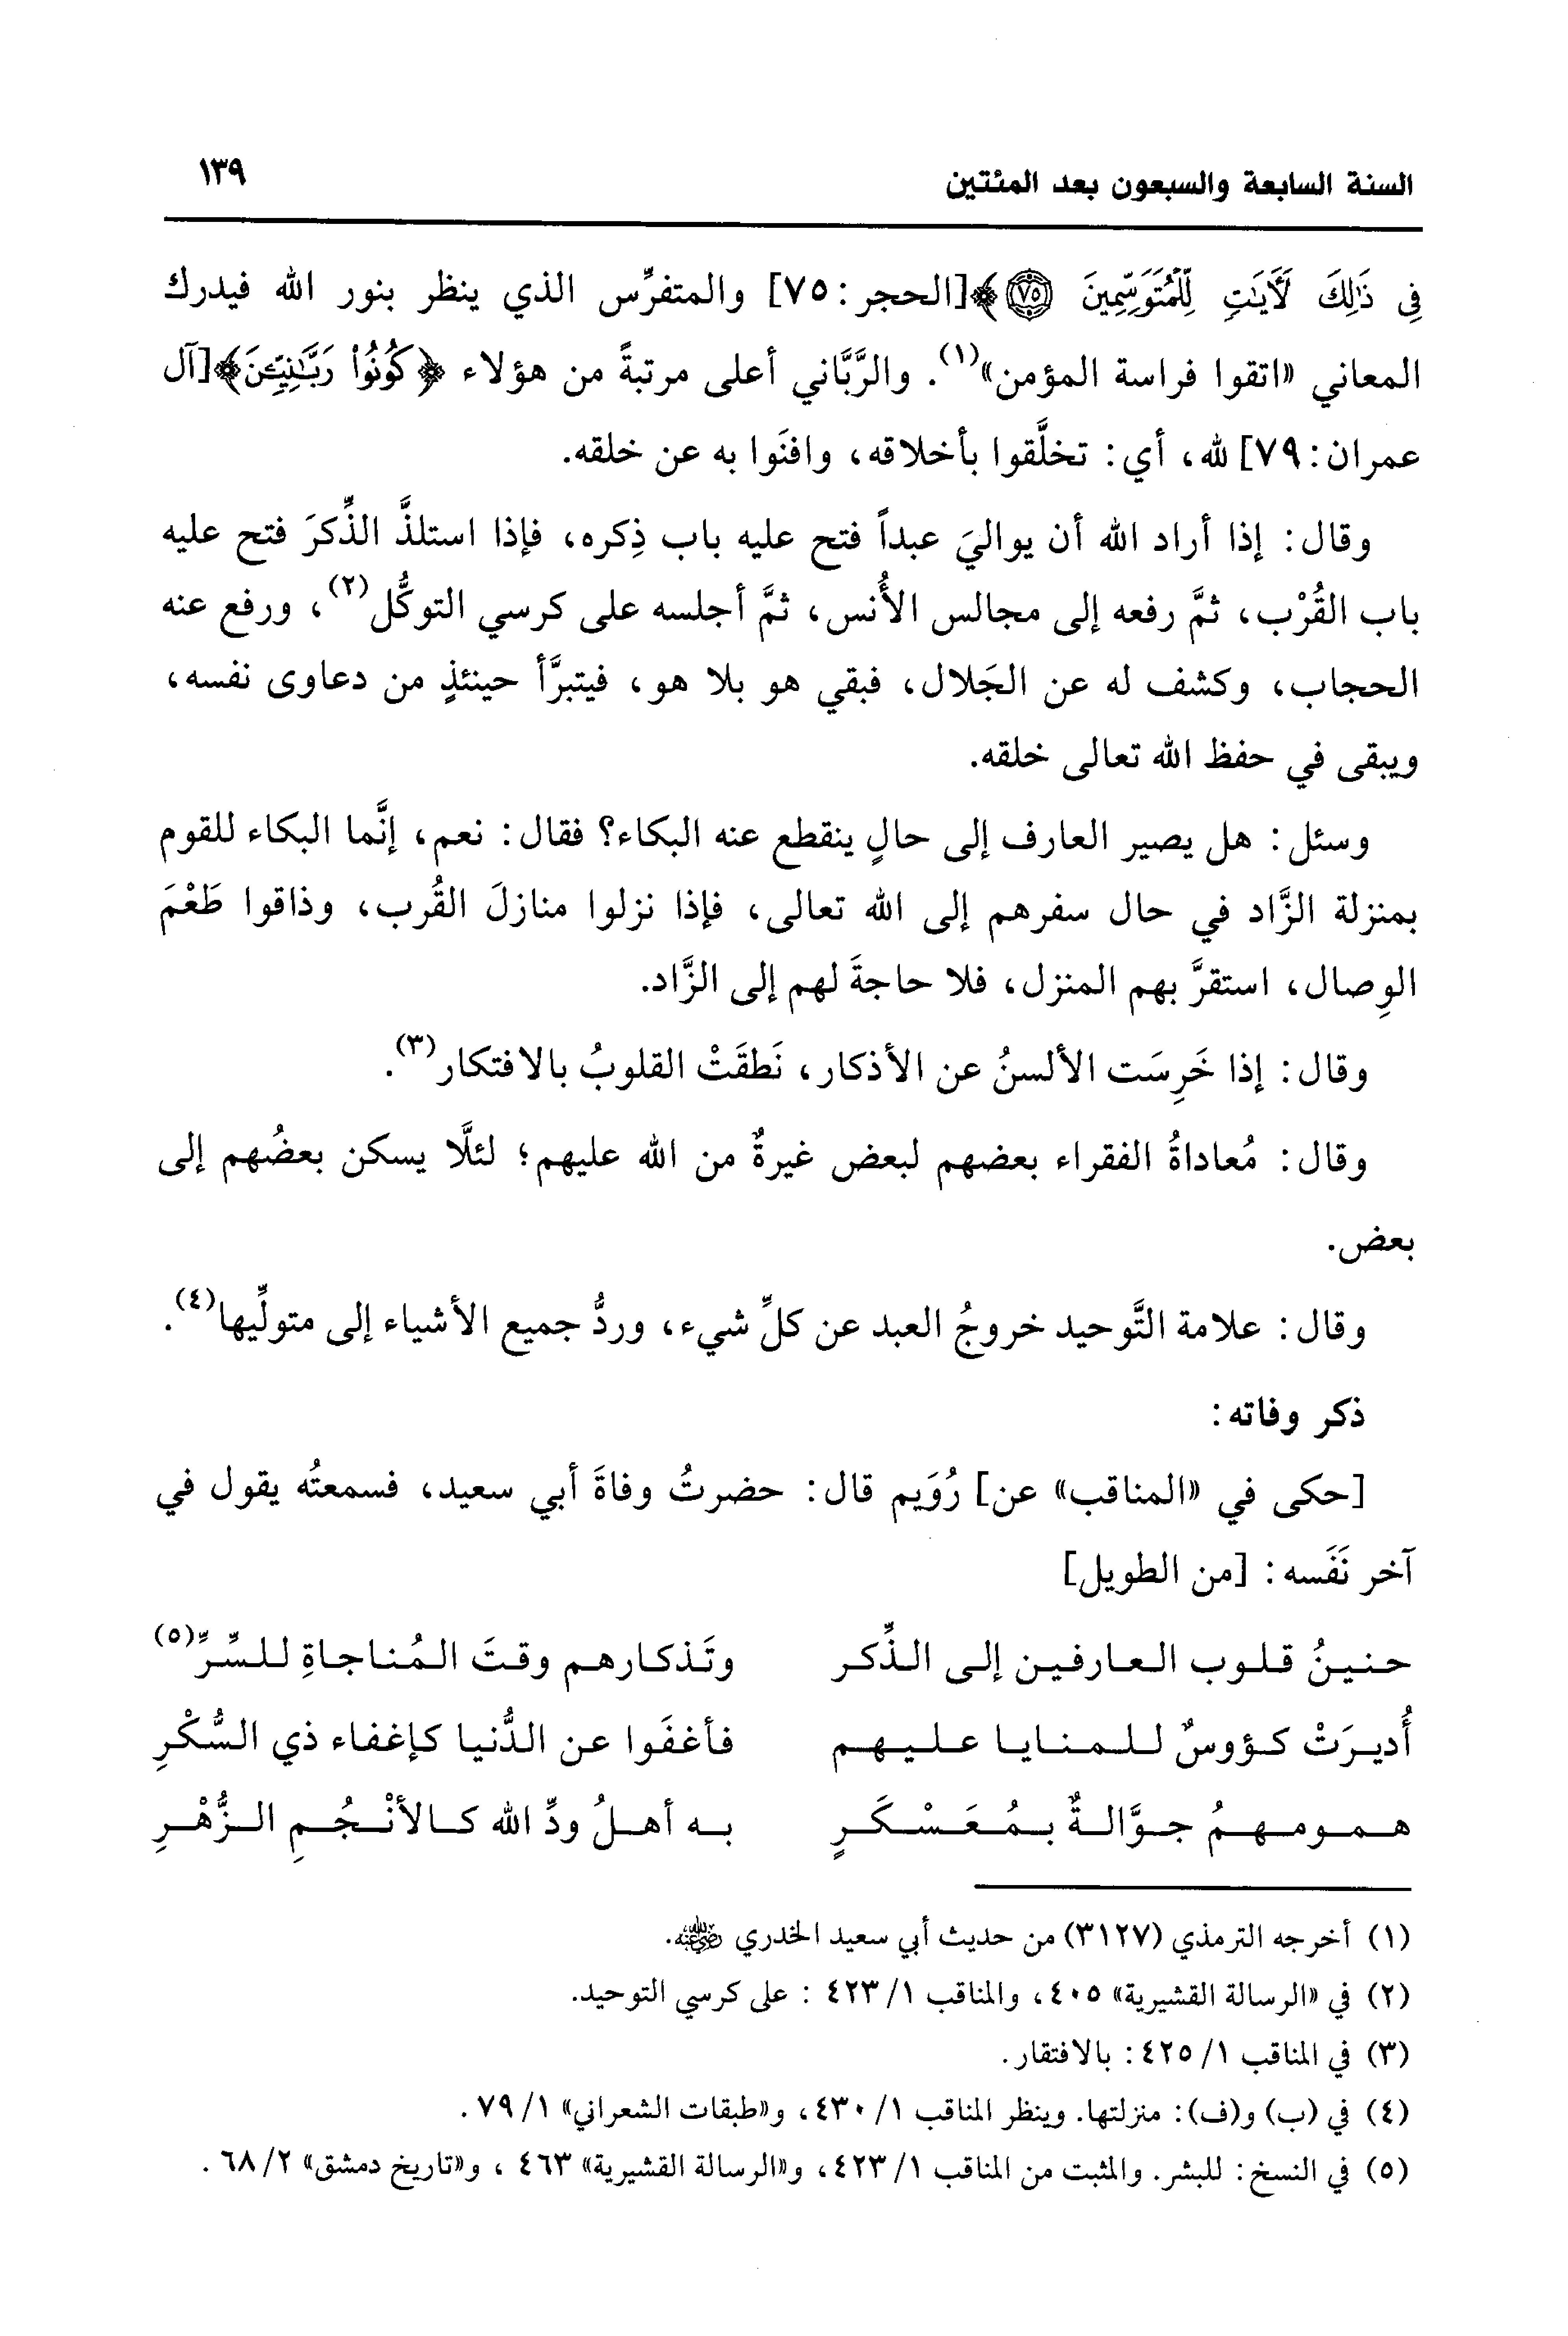 السنة السابعة والسبعون بعد المئتين ١٣٩
فِى ذَٰلِكَ لَأَيَٰتٍ لِّلْمُتَوَسِّمِينَ ﴿٧٥﴾﴾[الحجر: ٧٥] والمتفرِّس الذي ينظر بنور الله فيدرك
المعاني «اتقوا فراسة المؤمن»(١). والرَّبَّاني أعلى مرتبةً من هؤلاء ﴿كُونُوا۟ رَبَّٰنِيِّـۧنَ﴾[آل
عمران: ٧٩] لله، أي: تخلَّقوا بأخلاقه، وافنَوا به عن خلقه.
وقال: إذا أراد الله أن يواليَ عبداً فتح عليه باب ذِكره، فإذا استلذَّ الذِّكرَ فتح عليه
باب القُرْب، ثمَّ رفعه إلى مجالس الأُنس، ثمَّ أجلسه على كرسي التوكُّل(٢)، ورفع عنه
الحجاب، وكشف له عن الجَلال، فبقي هو بلا هو، فيتبرَّأ حينئذٍ من دعاوى نفسه،
ويبقى في حفظ الله تعالى خلقه.
وسئل: هل يصير العارف إلى حالٍ ينقطع عنه البكاء؟ فقال: نعم، إنَّما البكاء للقوم
بمنزلة الزَّاد في حال سفرهم إلى الله تعالى، فإذا نزلوا منازلَ القُرب، وذاقوا طَعْمَ
الوِصال، استقرَّ بهم المنزل، فلا حاجةَ لهم إلى الزَّاد.
وقال: إذا خَرِسَت الألسنُ عن الأذكار، نَطقَتْ القلوبُ بالافتكار(٣).
وقال: مُعاداةُ الفقراء بعضهم لبعض غيرةٌ من الله عليهم؛ لئلَّا يسكن بعضُهم إلى
بعض.
وقال: علامة التَّوحيد خروجُ العبد عن كلِّ شيء، وردُّ جميع الأشياء إلى متولِّيها(٤).
ذكر وفاته:
[حكى في «المناقب» عن] رُوَيم قال: حضرتُ وفاةَ أبي سعيد، فسمعتُه يقول في
آخر نَفَسه: [من الطويل]
حنينُ قلوب العارفين إلى الذِّكر وتَذكارهم وقتَ المُناجاةِ للسِّرِّ(٥)
أُديرَتْ كؤوسٌ للمنايا عليهم فأغفَوا عن الدُّنيا كإغفاء ذي السُّكْرِ
همومهمُ جوَّالةٌ بمُعَسْكَرٍ به أهلُ ودِّ الله كالأنْجُمِ الزُّهْرِ
(١) أخرجه الترمذي (٣١٢٧) من حديث أبي سعيد الخدري رضي الله عنه.
(٢) في «الرسالة القشيرية» ٤٠٥، والمناقب ١/ ٤٢٣ : على كرسي التوحيد.
(٣) في المناقب ١/ ٤٢٥: بالافتقار.
(٤) في (ب) و(ف): منزلتها. وينظر المناقب ١/ ٤٣٠، و«طبقات الشعراني» ١/ ٧٩.
(٥) في النسخ: للبشر. والمثبت من المناقب ١/ ٤٢٣، و«الرسالة القشيرية» ٤٦٣ ، و«تاريخ دمشق» ٢/ ٦٨.